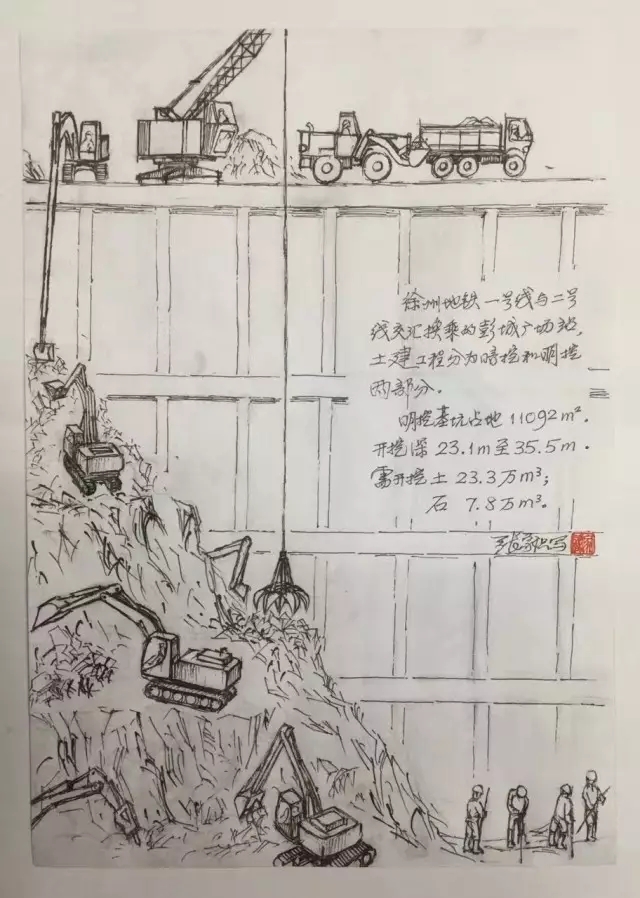 徐州地铁一号线与二号
线交汇换乘的彭城广场站，
土建工程分为暗挖和明挖
两部分。
明挖基坑占地 11092m²。
开挖深 23.1m至35.5m.
需开挖土 23.3万m³；
石 7.8万m³。